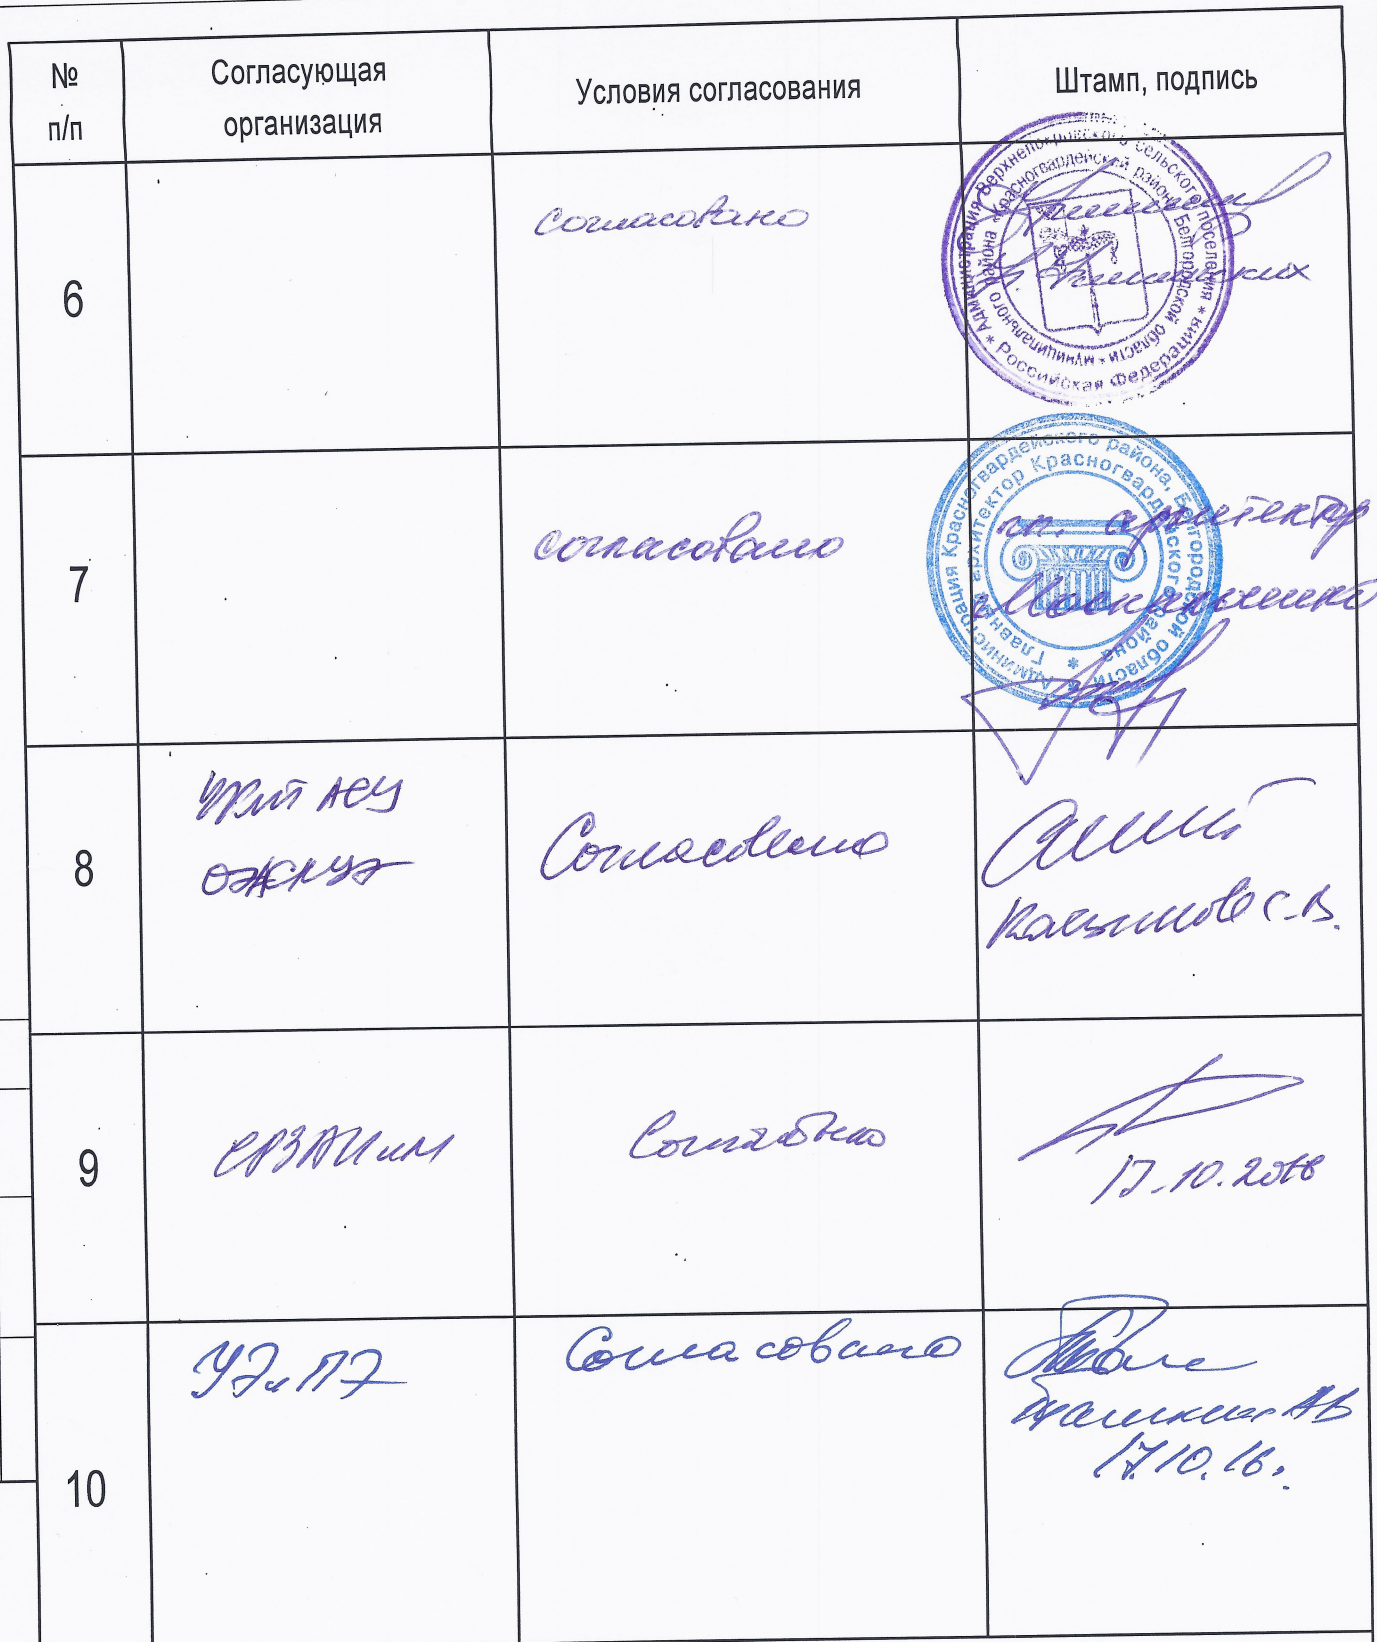 №
п/п
Согласующая
организация
Условия согласования
Штамп, подпись
6
согласовано
* Администрация Верхнепокровского сельского поселения * Российская Федерация
муниципального района «Красногвардейский район» Белгородской области *
7
согласовано
Администрация Красногвардейского района, Белгородской области *
Главный архитектор Красногвардейского района *
гл. архитектор
8
Согласовано
С.В.
9
Согласовано
17.10.2016
10
УЭиПЭ
Согласовано
АВ
17.10.16.